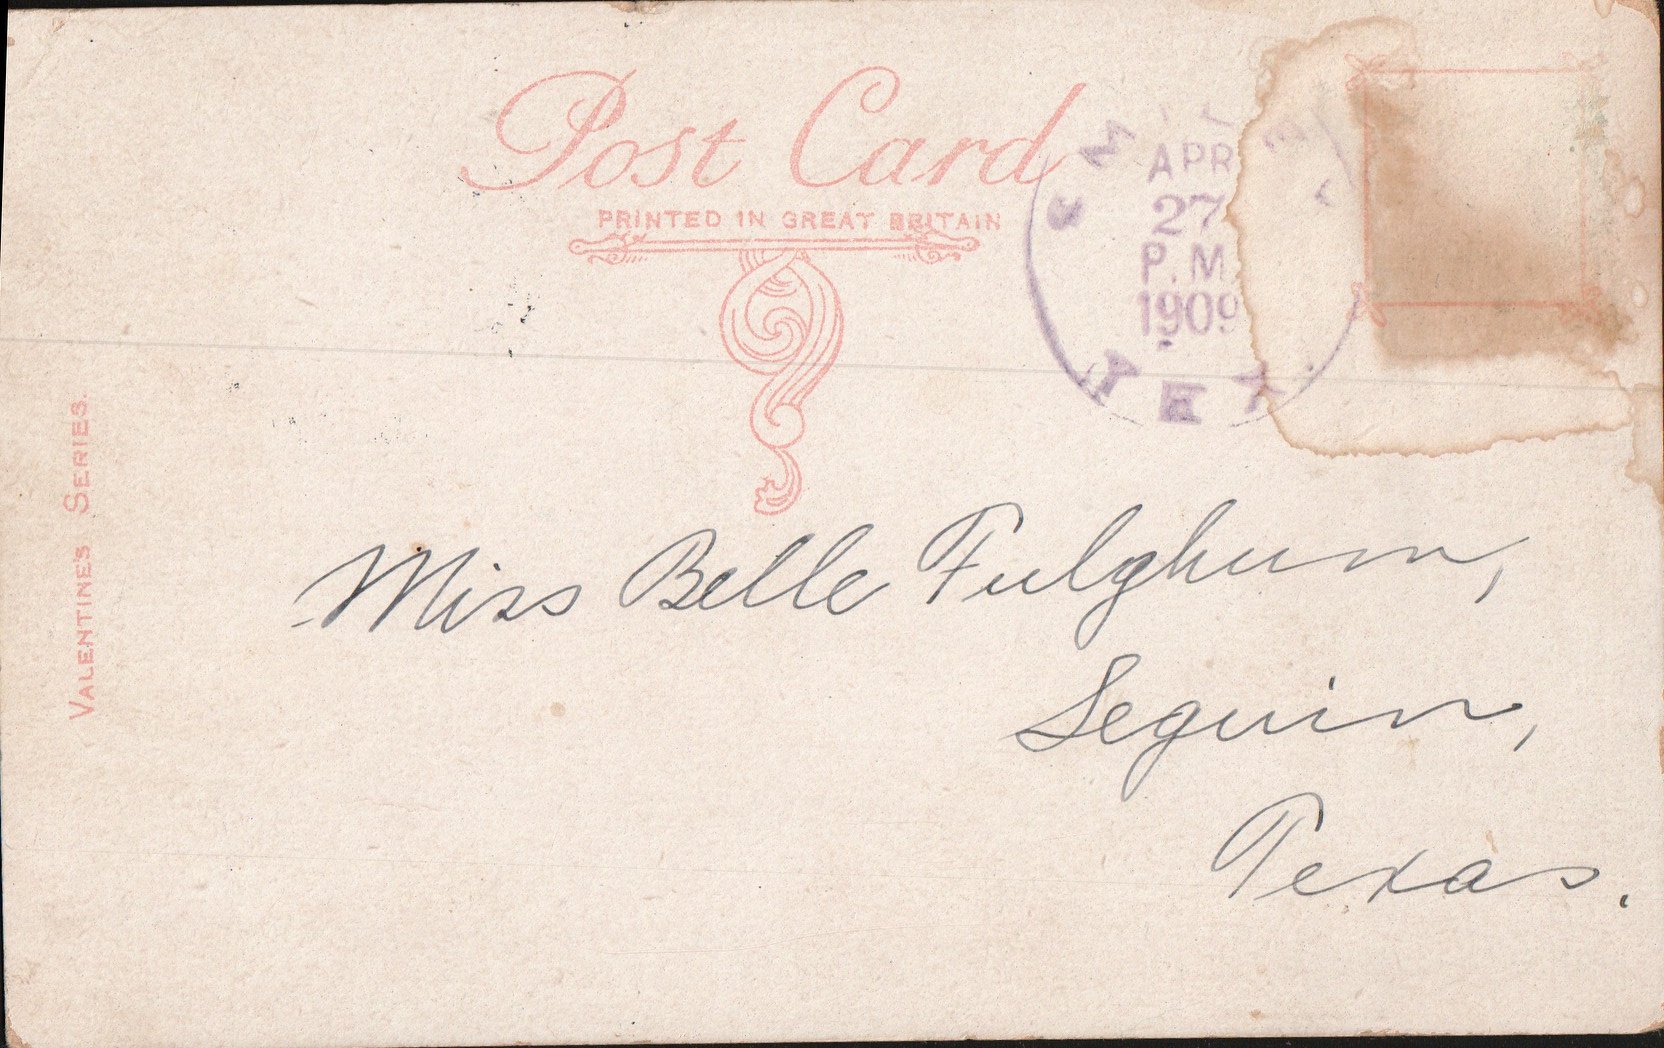 Post Card
PRINTED IN GREAT BRITAIN
APR
27
P.M
1909
TEX.
VALENTINE'S SERIES.
Miss Belle Fulghum,
Seguin,
Texas.